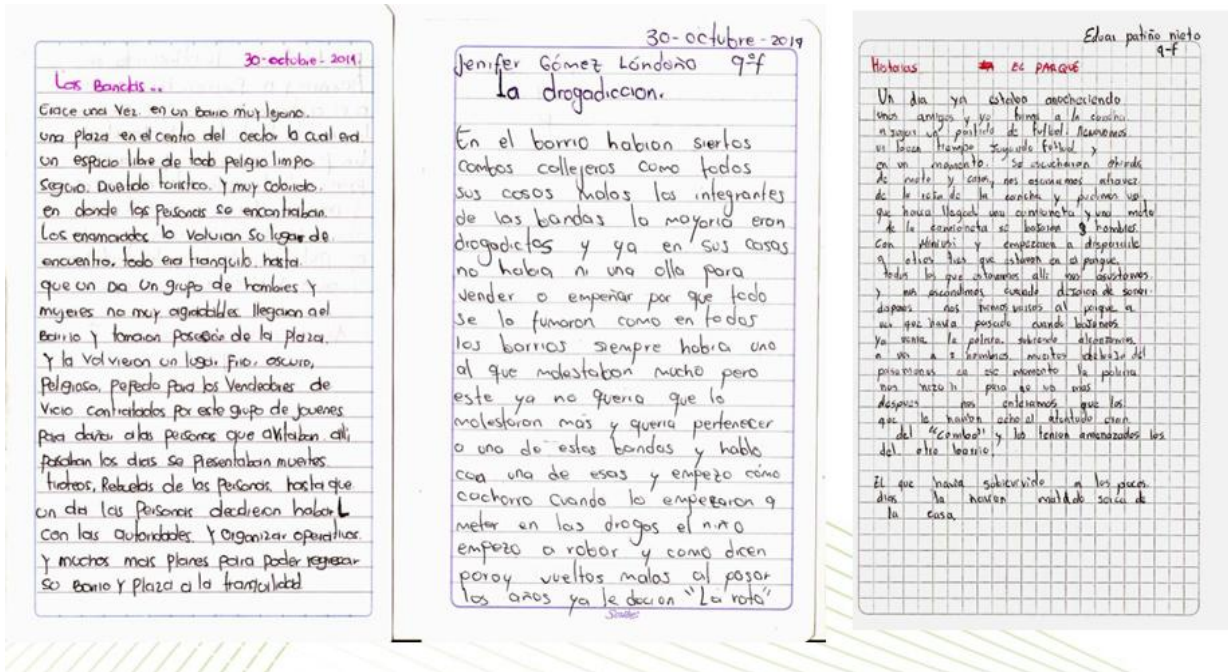 30-octubre-2019.
Las Bandas..
Erace una Vez. en un Barrio muy lejano.
una plaza en el centro del cector la cual era
un espacio libre de todo peligro limpio
Seguro. Divetido toristico. Y muy colorido.
en donde las Personas se encontraban.
Los enamorados lo volvian so lugar de
encuentro. todo era tranquilo. hasta.
que un Dia un grupo de hombres Y
mujeres no muy agradables llegaron ael
Barrio Y tomaron Posesión de la Plaza.
Y la Volvieron un lugar Frio, oscuro,
Peligroso, Perfecto Para los Vendedores de
Vicio contratados Por este grupo de jovenes
Para dañar alas personas que avitaban alli
Pasaban los dias se Presentaban muertes
tiroteos, Rebuelos de las Personas. hasta que
un dia las Personas decidieron habarL
Con las autoridades. Y Organizar operativos.
Y muchos mas Planes Para Poder regresar
so Barrio Y Plaza a la tranquilidad
30-octubre-2019
Jenifer Gómez Londoño 9º-f
La drogadiccion.
En el barrio habian siertos
combos callejeros como todos
sus cosas malas los integrantes
de las bandas la mayoria eran
drogadictos y ya en sus casas
no habia ni una olla para
vender o empeñar por que todo
se lo fumaron como en todos
los barrios siempre habia uno
al que molestaban mucho pero
este ya no queria que lo
molestaran más y queria pertenecer
a una de estas bandas y hablo
con una de esas y empezo cómo
cachorro Cuando lo empezaron a
meter en las drogas el niño
empezo a robar y como dicen
poray vueltas malas al pasar
los años ya le decian "La rata"
Scribe
Eduar patiño nieto
9-f
Historias EL PARQUE
Un dia ya estaba anocheciendo
unos amigos y yo fuimos a la cancha
a jugar un partido de futbol.
un buen tiempo jugando futbol y
en un momento. Se escucharon
de moto y carro, nos asomamos atravez
de la reja de la cancha y pudimos ver
que havia llegado una camioneta y una moto
de la camioneta se bajaron 3 hombres.
con y empezaron a dispararle
a otros que estavan en el parque.
todos los que estavamos alli nos asustamos.
y nos escondimos cuando dejaron de sonar.
dispaos nos fuimos al parque a
ver que havia pasado cuando bajamos
ya venia la policia, subiendo alcanzamos
a ver a 2 hombres muertos debajo del
pasamanos en ese momento la policia
nos hizo ir para
despues nos enteramos que los
que le havian echo el atentado eran
del "combo" y los tenian amenazados los
del otro barrio.
El que havia sobievivido a los pocos
dias la havian matado serca de
la casa.